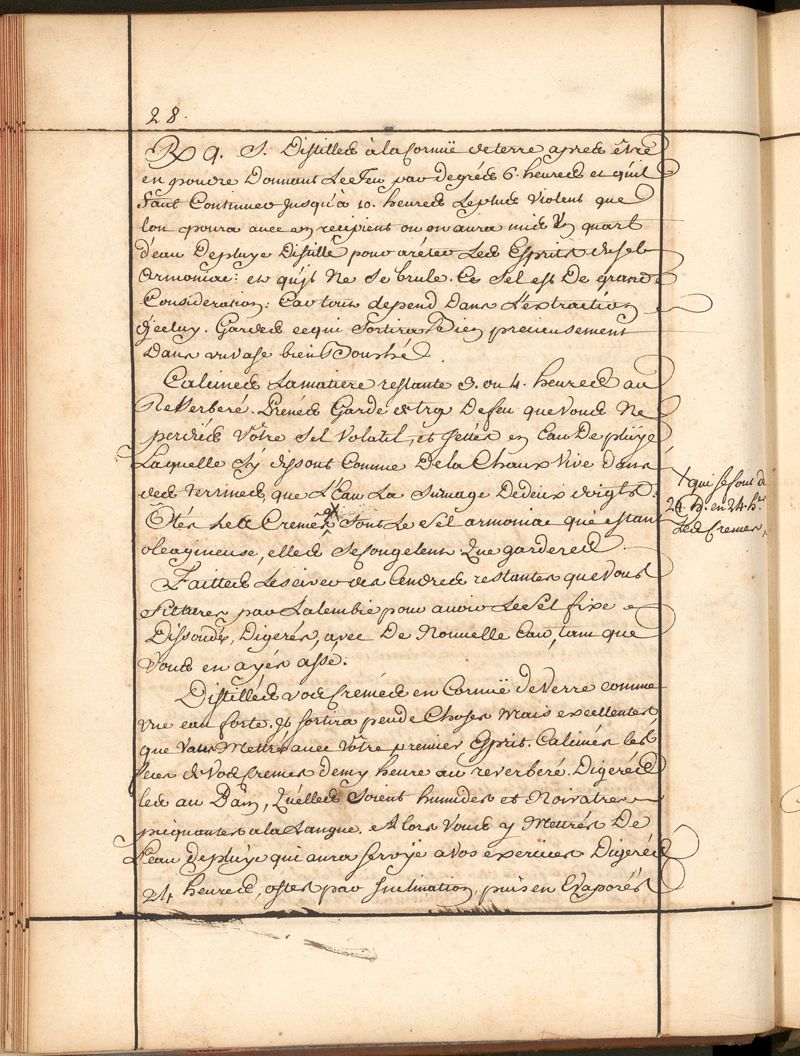 28.
℞ q. S. Distilleés à la Cornuë de terre apres être
en poudre Donnant Le Feu par degrés 6. heures et qu'il
faut Continuer Jusqu'à 10. heures Le plus Violent que
lon poura avec un recipient ou on aura mis Un quart
d'eau De pluye Distillé pour arêter Les Esprits du sel
Armoniac: et qu'il Ne Se brule. Ce Sel est De grande
Consideration: Car tout depend Dans L'extraction
d'jceluy. Gardés ce qui Sortira bien precieusement
Dans un vase bien Bouché.
Calcinés La matiere restante 3. ou 4. heures au
ReVerberé. Prenés Garde de trop De feu que Vous Ne
perdiés Vôtre Sel Volatil, et Jettés en Eau De pluÿe
Laquelle s'y dissout Comme De la Chaux Vive dans
des terrines, que L'Eau La Surnage De deux doigts.
Otés Les Cremes + Sont Le Sel armoniac qui estant
oleagineuse, elles Se Congelent Que garderes.
Faittes Lessives des Cendres restantes que Vous
filtrerés par Lalembic pour avoir Le Sel fixe
Dissoudés, Digerés, avec De Nouvelle Eau, tant que
Vous en ayés assé.
Distillés vos Cremes en Cornuë de Verre comme
une eau forte. Jl sortira peu de Choses Mais excellentes
que Vous Mettrés avec Vôtre premier Esprit. Calcinés les
feces de Vos Cremes demy heure au reverberé. Digerés
les au Bain, Qu'elles Soient humides et Noirâtres
picquantes a la Langue. Alors Vous y Mettrés De
L'eau de pluÿe qui aura servÿe a vos exercices Digerés
24 heures, ostés par Inclination, puis en Evaporés
+ qui se font de
24. h. en 24. h.es
Les Cremes,